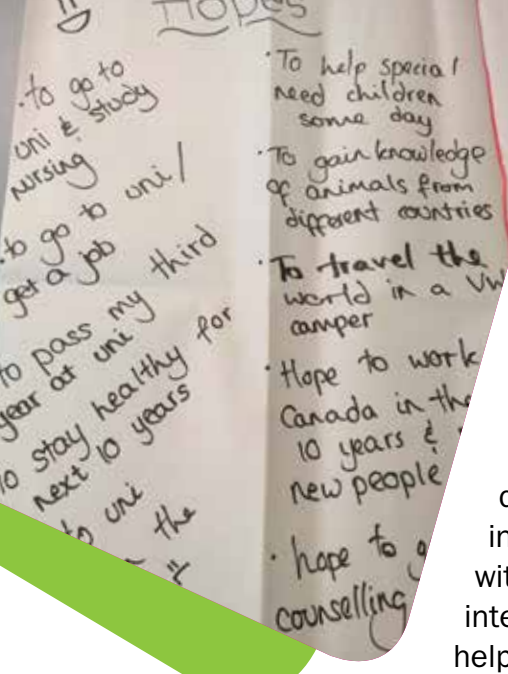 Hopes
·to go to
uni & study
nursing
·to go to uni/
get a job
to pass my third
year at uni
to stay healthy for
next 10 years
to uni
the
·To help special
need children
some day
·To gain knowledge
of animals from
different countries
·To travel the
world in a VW
camper
·Hope to work
Canada in the
10 years &
new people
·hope to
counselling
help